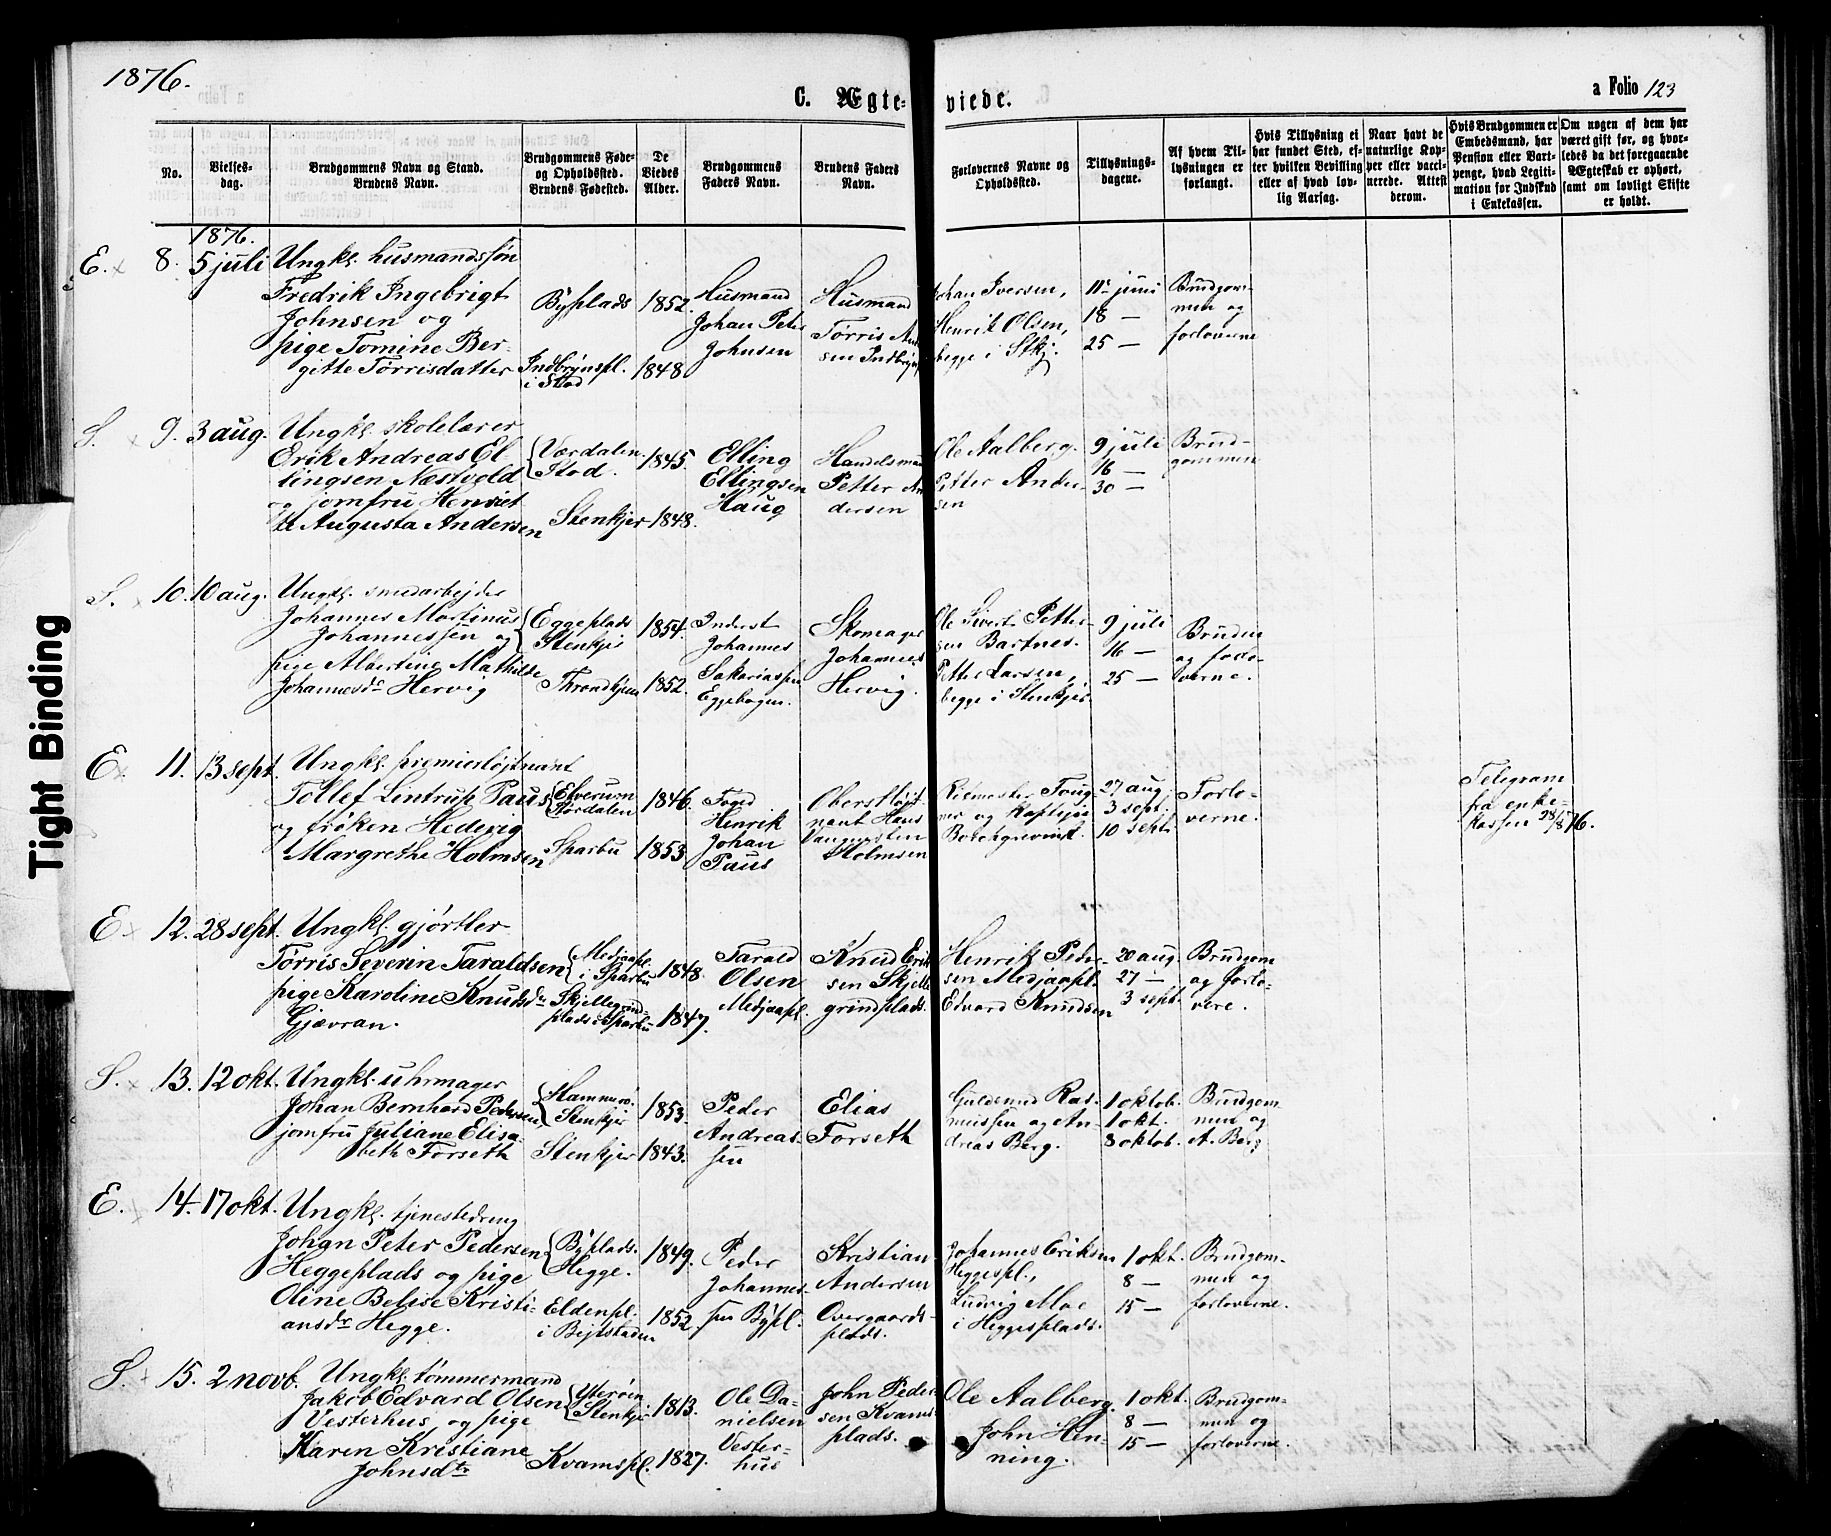 1876.
C. Ægte-
viede.
a Folio 123
No.
Vielses-
dag.
Brudgommens Navn og Stand.
Brudens Navn.
Brudgommens Føde-
og Opholdssted.
Brudens Fødested.
De
Viedes
Alder.
Brudgommens
Faders Navn.
Brudens Faders
Navn.
Forlovernes Navne og
Opholdssted.
Tillysnings-
dagene.
Af hvem Til-
lysningen er
forlangt.
Hvis Tillysning ei
har fundet Sted, ef-
ter hvilken Bevilling
eller af hvad lov-
lig Aarsag.
Naar havt de
naturlige Kop-
per eller vacci-
nerede. Attest
derom.
Hvis Brudgommen er
Embedsmand, har
Pension eller Vart-
penge, hvad Legiti-
mation for Indskud
i Enkekassen.
Om nogen af dem har
været gift før, og hvor-
ledes da det foregaaende
Ægteskab er ophørt,
samt om lovligt Skifte
er holdt.
1876.
E. 8. 5 juli Ungkl. husmandssøn
Fredrik Ingebrigt
Johnsen og
pige Tomine Ber-
gitte Tørrisdatter
Byplads
Indbrynspl.
i Stod
1852.
1848
Husmand
Johan Peter
Johnsen
Husmand
Tørris
sen
Johan Iversen,
Henrik Olsen,
begge i Stkj.
11te juni
18 —
25 —
Brudgom-
men og
forloverne
S. 9. 3 aug. Ungkl. skolelærer
Erik Andreas El-
lingsen Næstvold
og jomfru Henriet
te Augusta Andersen
Værdalen
Stod.
Stenkjer
1845.
1848.
Elling
Ellingsen
Haug
Handelsmand
Petter An
dersen
Ole Aalberg.
Petter Ander-
sen
9 juli
16 —
30 —
Brud-
gommen
S. 10. 10 aug. Ungkl. smedarbejder
Johannes Martinus
Johannessen og
pige Albertine Mathilde
Johannesdr Hervig
Eggeplads
Stenkjer
Throndhjem
1854.
1852.
Inderst
Johannes
Sakariassen
Eggebogen.
Skomager
Johannes
Hervig.
Ole Sivert Petter-
sen Bartnes.
Petter Larsen,
begge i Stenkjer
9 juli
16 —
25 —
Bruden
og forlo-
verne.
E. 11. 13 sept. Ungkl. premierløjtnant
Tollef Lintrup Paus
og frøken Hedevig
Margrethe Holmsen
Elverum
Størdalen
Sparbu
1846.
1853
Foged
Henrik
Johan
Paus
Oberstløjt-
nant Hans
Holmsen
og Kaptejn
27 aug.
3 sept.
10 sept.
Forlo-
verne.
Telegram
fra enke-
kassen 28/8 76.
E. 12. 28 sept. Ungkl. gjørtler
Tørris Severin Taraldsen
pige Karoline Knudsdr
Gjævran.
Medjaapl.
i Sparbu
Skjellegrind-
plads i Sparbu
1848.
1847.
Tarald
Olsen
Medjaapl.
Knud Erik
sen Skjelle
grindplads.
Henrik Peder-
sen Medjaapl.
Edvard Knudsen
20 aug.
27 —
3 sept.
Brudgom
og forlo-
vere.
S. 13. 12 okt. Ungkl. uhrmager
Johan Bernhard Pedersen
jomfru Juliane Elisa-
beth Forseth
Hammerø.
Stenkjer
Stenkjer
1853.
1843.
Peder
Andreas-
sen
Elias
Forseth
Guldsmed Ras-
mussen og An-
dreas Berg.
1 oktob.
1 okt.
8 oktob.
Brudgom-
men og
A. Berg
E. 14. 17 okt. Ungkl. tjenestedreng
Johan Peter Pedersen
Heggeplads og pige
Oline Belise Kristi-
ansdr Hegge.
Byplads.
Hegge.
Eldenpl.
i Bejtstaden
1849.
1852.
Peder
Johannes-
sen Bypl.
Kristian
Andersen
Overgaards-
plads.
Johannes Eriksen
Heggespl.,
Ludvig Moe
i Heggesplads.
1 okt.
8 —
15 —
Brudgom-
men og
forloverne.
S. 15. 2 novb. Ungkl. tømmermand
Jakob Edvard Olsen
Vesterhus, og pige
Karen Kristiane
Johnsdtr
Ytterøen
Stenkjer
Kvamspl.
1813.
1827.
Ole Da-
nielsen
Vester-
hus
John Peder
sen Kvams-
plads.
Ole Aalberg.
John Hen-
ning.
1 okt.
8 —
15 —
Brudgom-
men og
forloverne.
Tight Binding